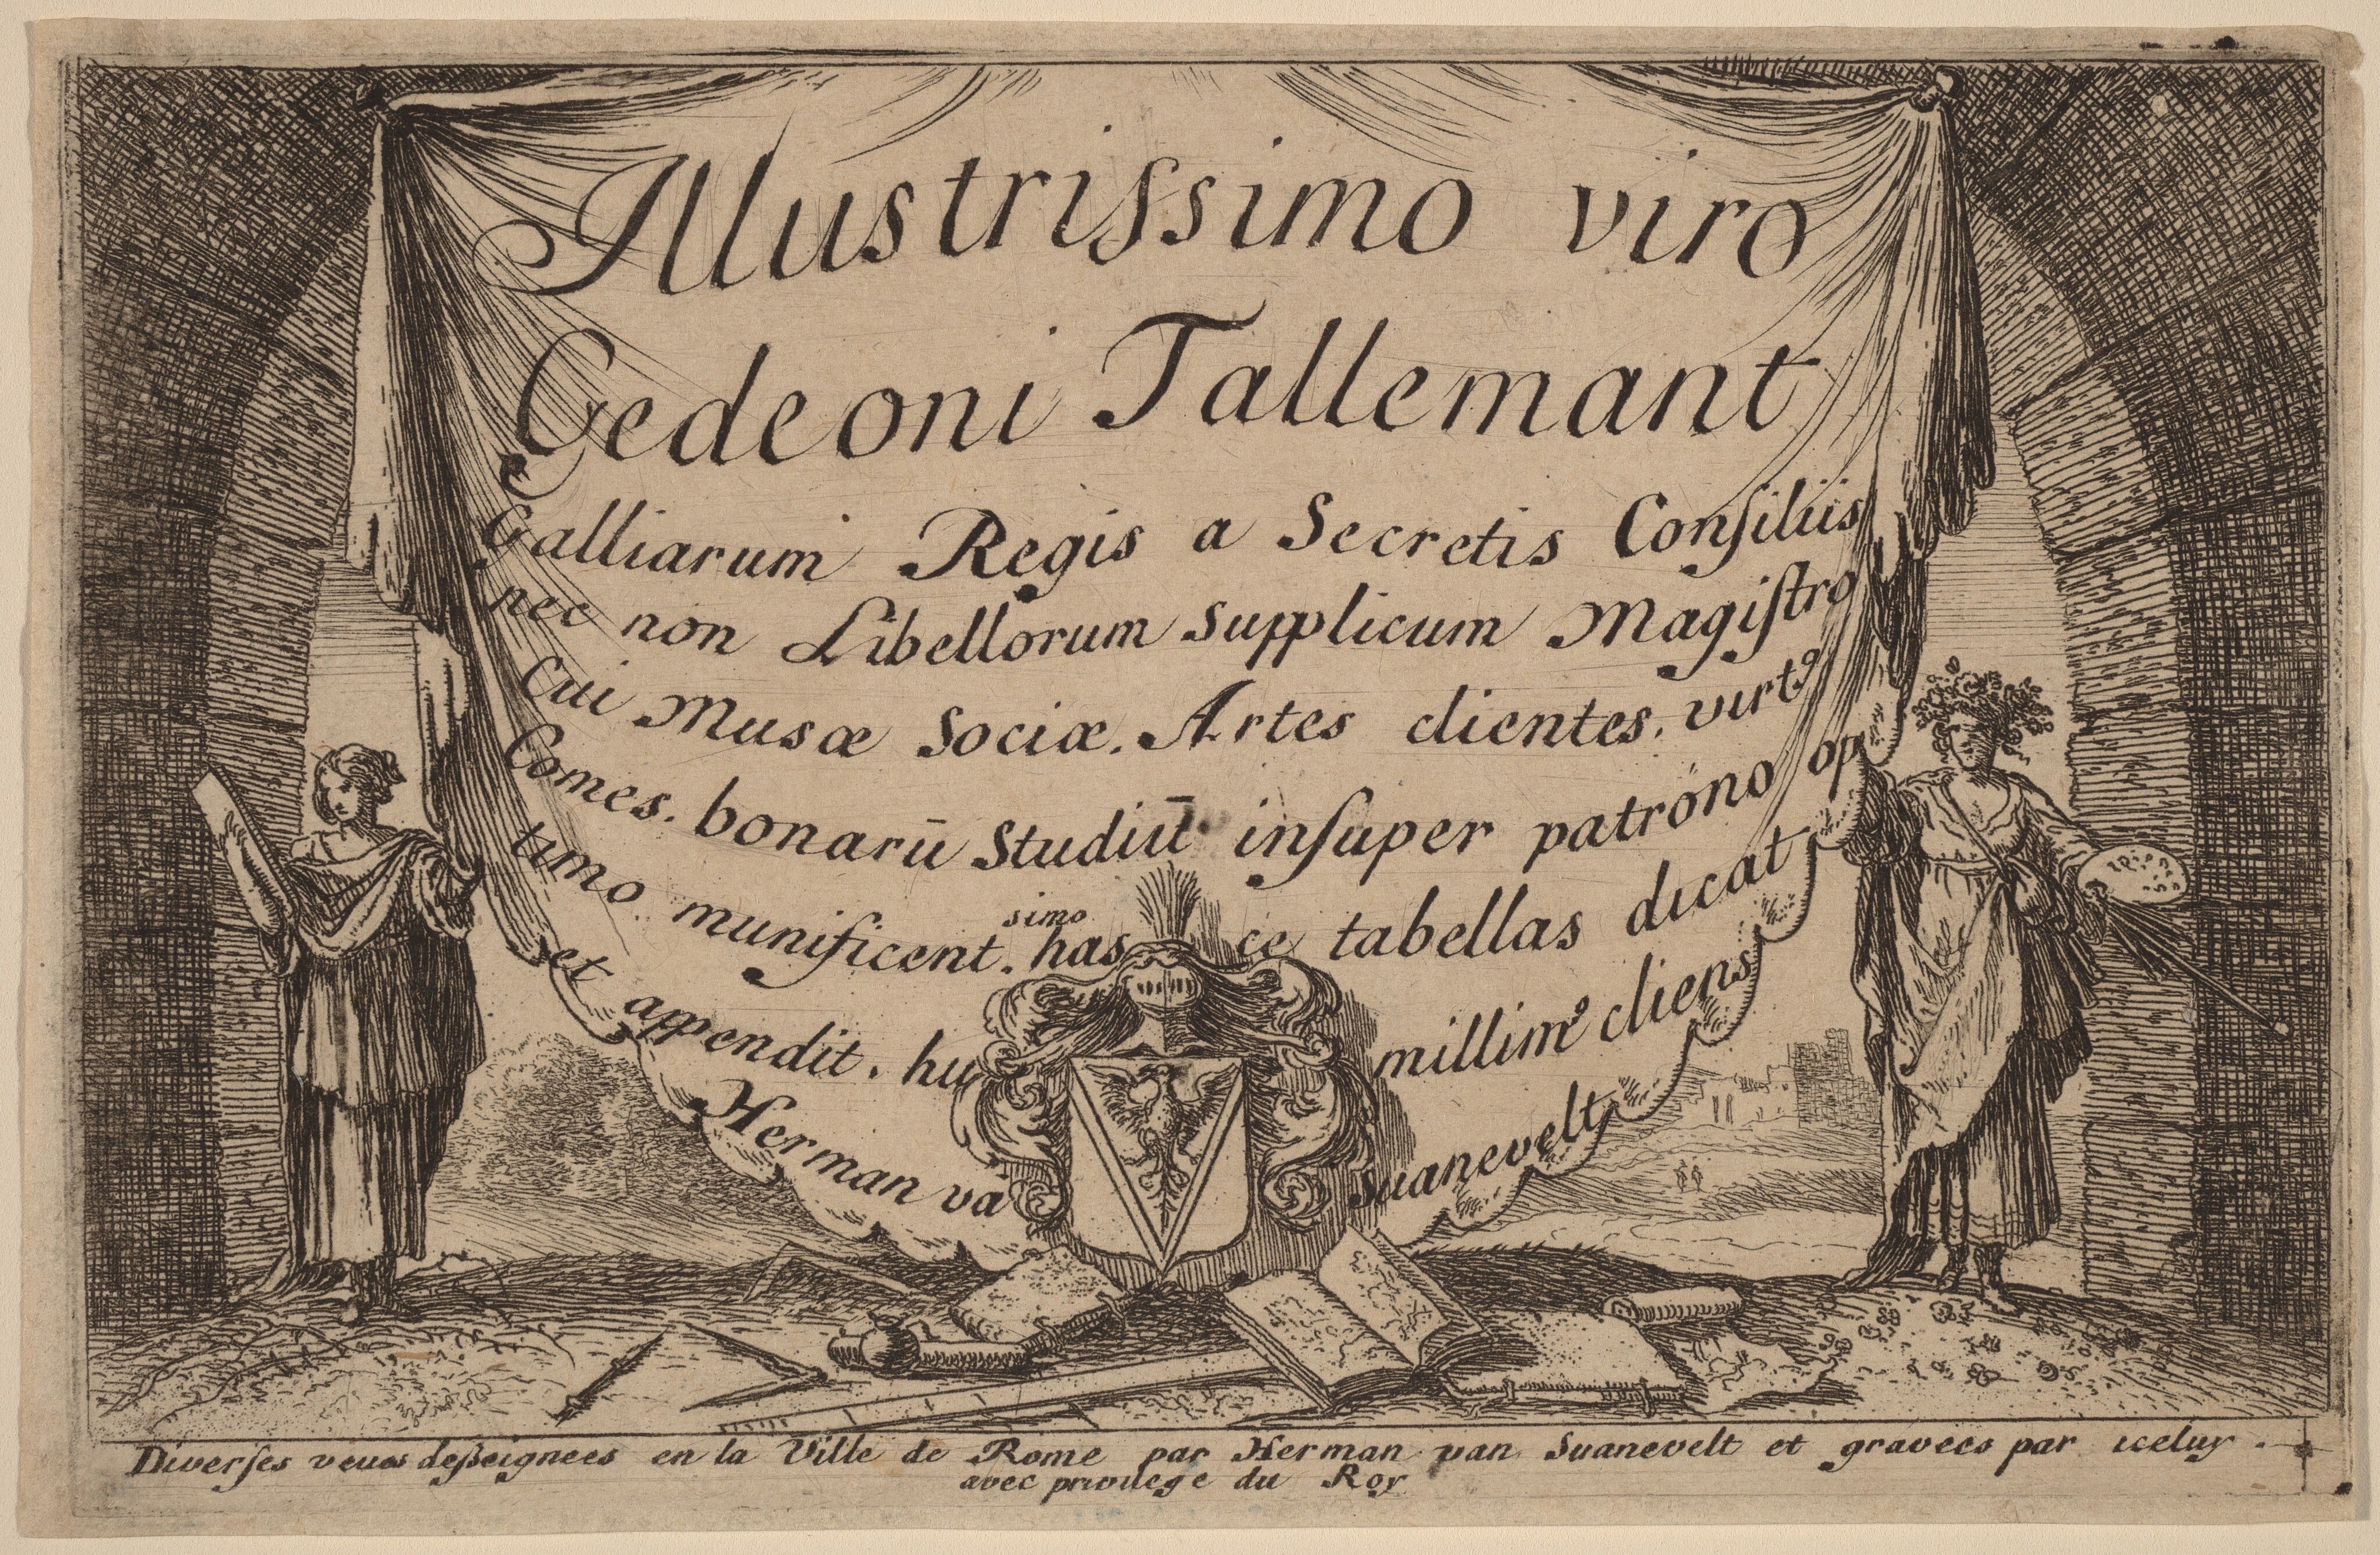 Illustriſsimo viro
Gedeoni Tallemant
Galliarum Regis a Secretis Conſiliis
nec non Libellorum Supplicum Magiſtro
Cui Musæ Sociæ. Artes clientes. virtꝰ
Comes. bonarū Studiū inſuper patrono op
timo munificent.simo hasce tabellas dicat
et appendit. humillimꝰ cliens
Herman vā Suanevelt
Diverſes veues deſseignees en la Ville de Rome par Herman van Suanevelt et gravees par iceluy.
avec privilege du Roy